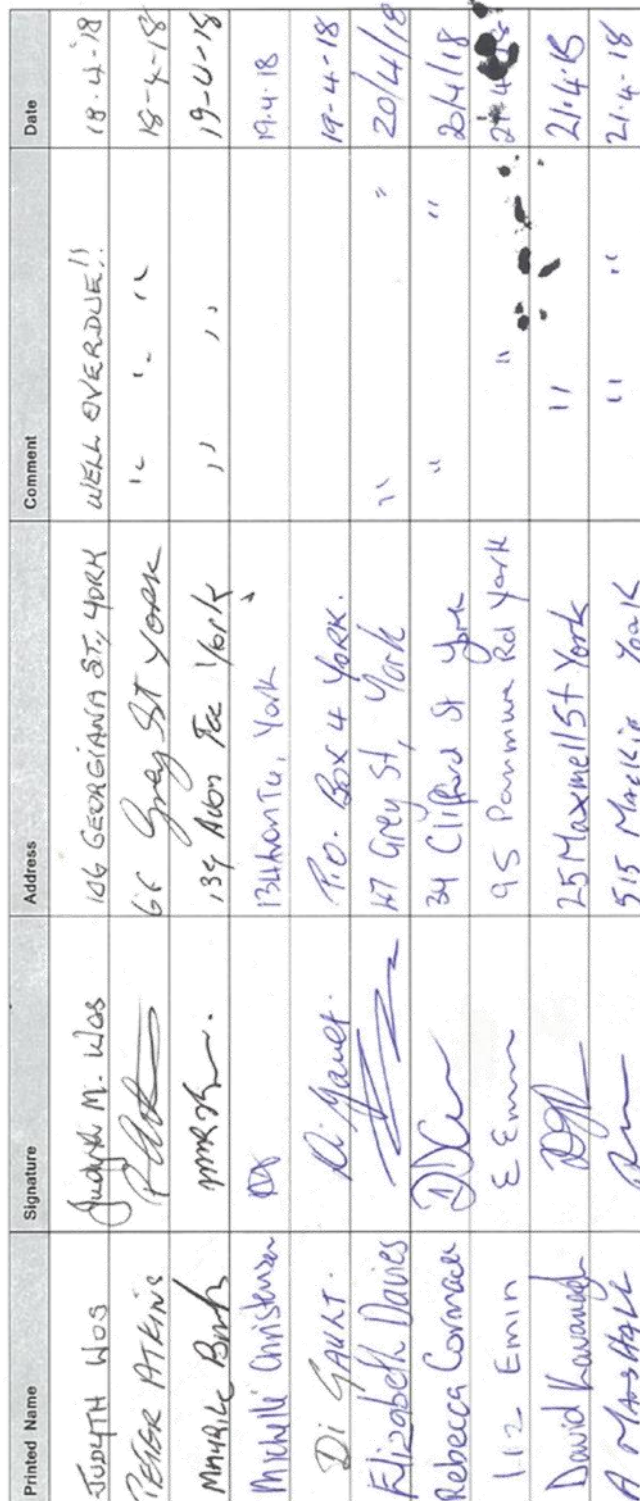 Printed Name Signature Address Comment Date
JUDYTH WOS Judyth M. Wos 106 GEORGIANA ST., YORK WELL OVERDUE!! 18-4-18
PETER ATKINS 66 Grey ST YORK " " " 18-4-18
MAURICE 134 Avon Tce York " " 19-4-18
Michelle Christensen 134 Avon Tce, York 19.4.18
Di GAULT. Di Gault. P.O. Box 4 YORK. 19-4-18
Elizabeth Davies 47 Grey St, York " " 20/4/18
Rebecca Cormack 34 Clifford St York " " 20/4/18
Liz Emin E Emin 95 Panmure Rd York " 21.4.18
David Kavanagh 25 Maxwell St York " 21.4.18
A MARSHALL 515 Mackie York " " 21.4.18